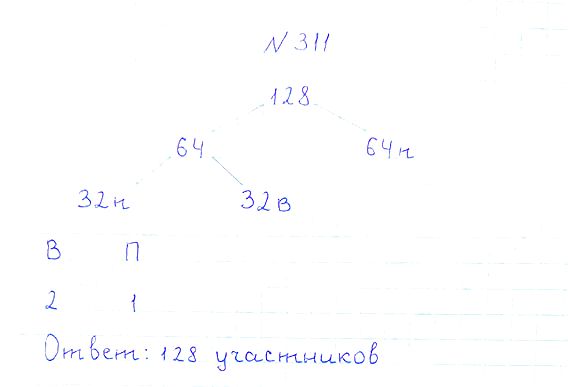 N 311
128
64 64н
32н 32в
В П
2 1
Ответ: 128 участников